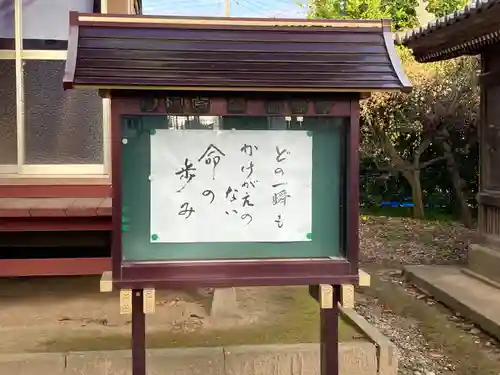 どの一瞬も
かけがえの
ない
命の
歩み